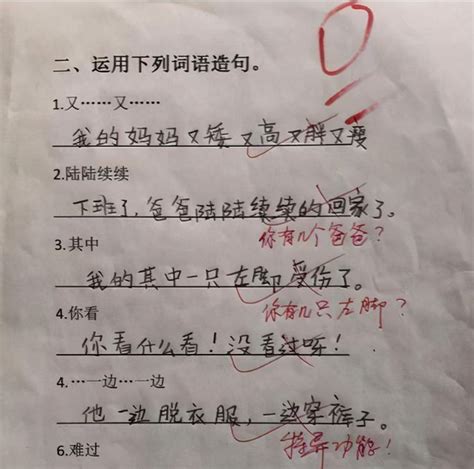 0
二、运用下列词语造句。
1.又……又……
我的妈妈又矮又高又胖又瘦
2.陆陆续续
下班了,爸爸陆陆续续的回家了。
你有几个爸爸?
3.其中
我的其中一只左脚受伤了。
你有几只左脚?
4.你看
你看什么看!没看过呀!
4.…一边…一边
他一边脱衣服,一边穿裤子。
特异功能!
6.难过